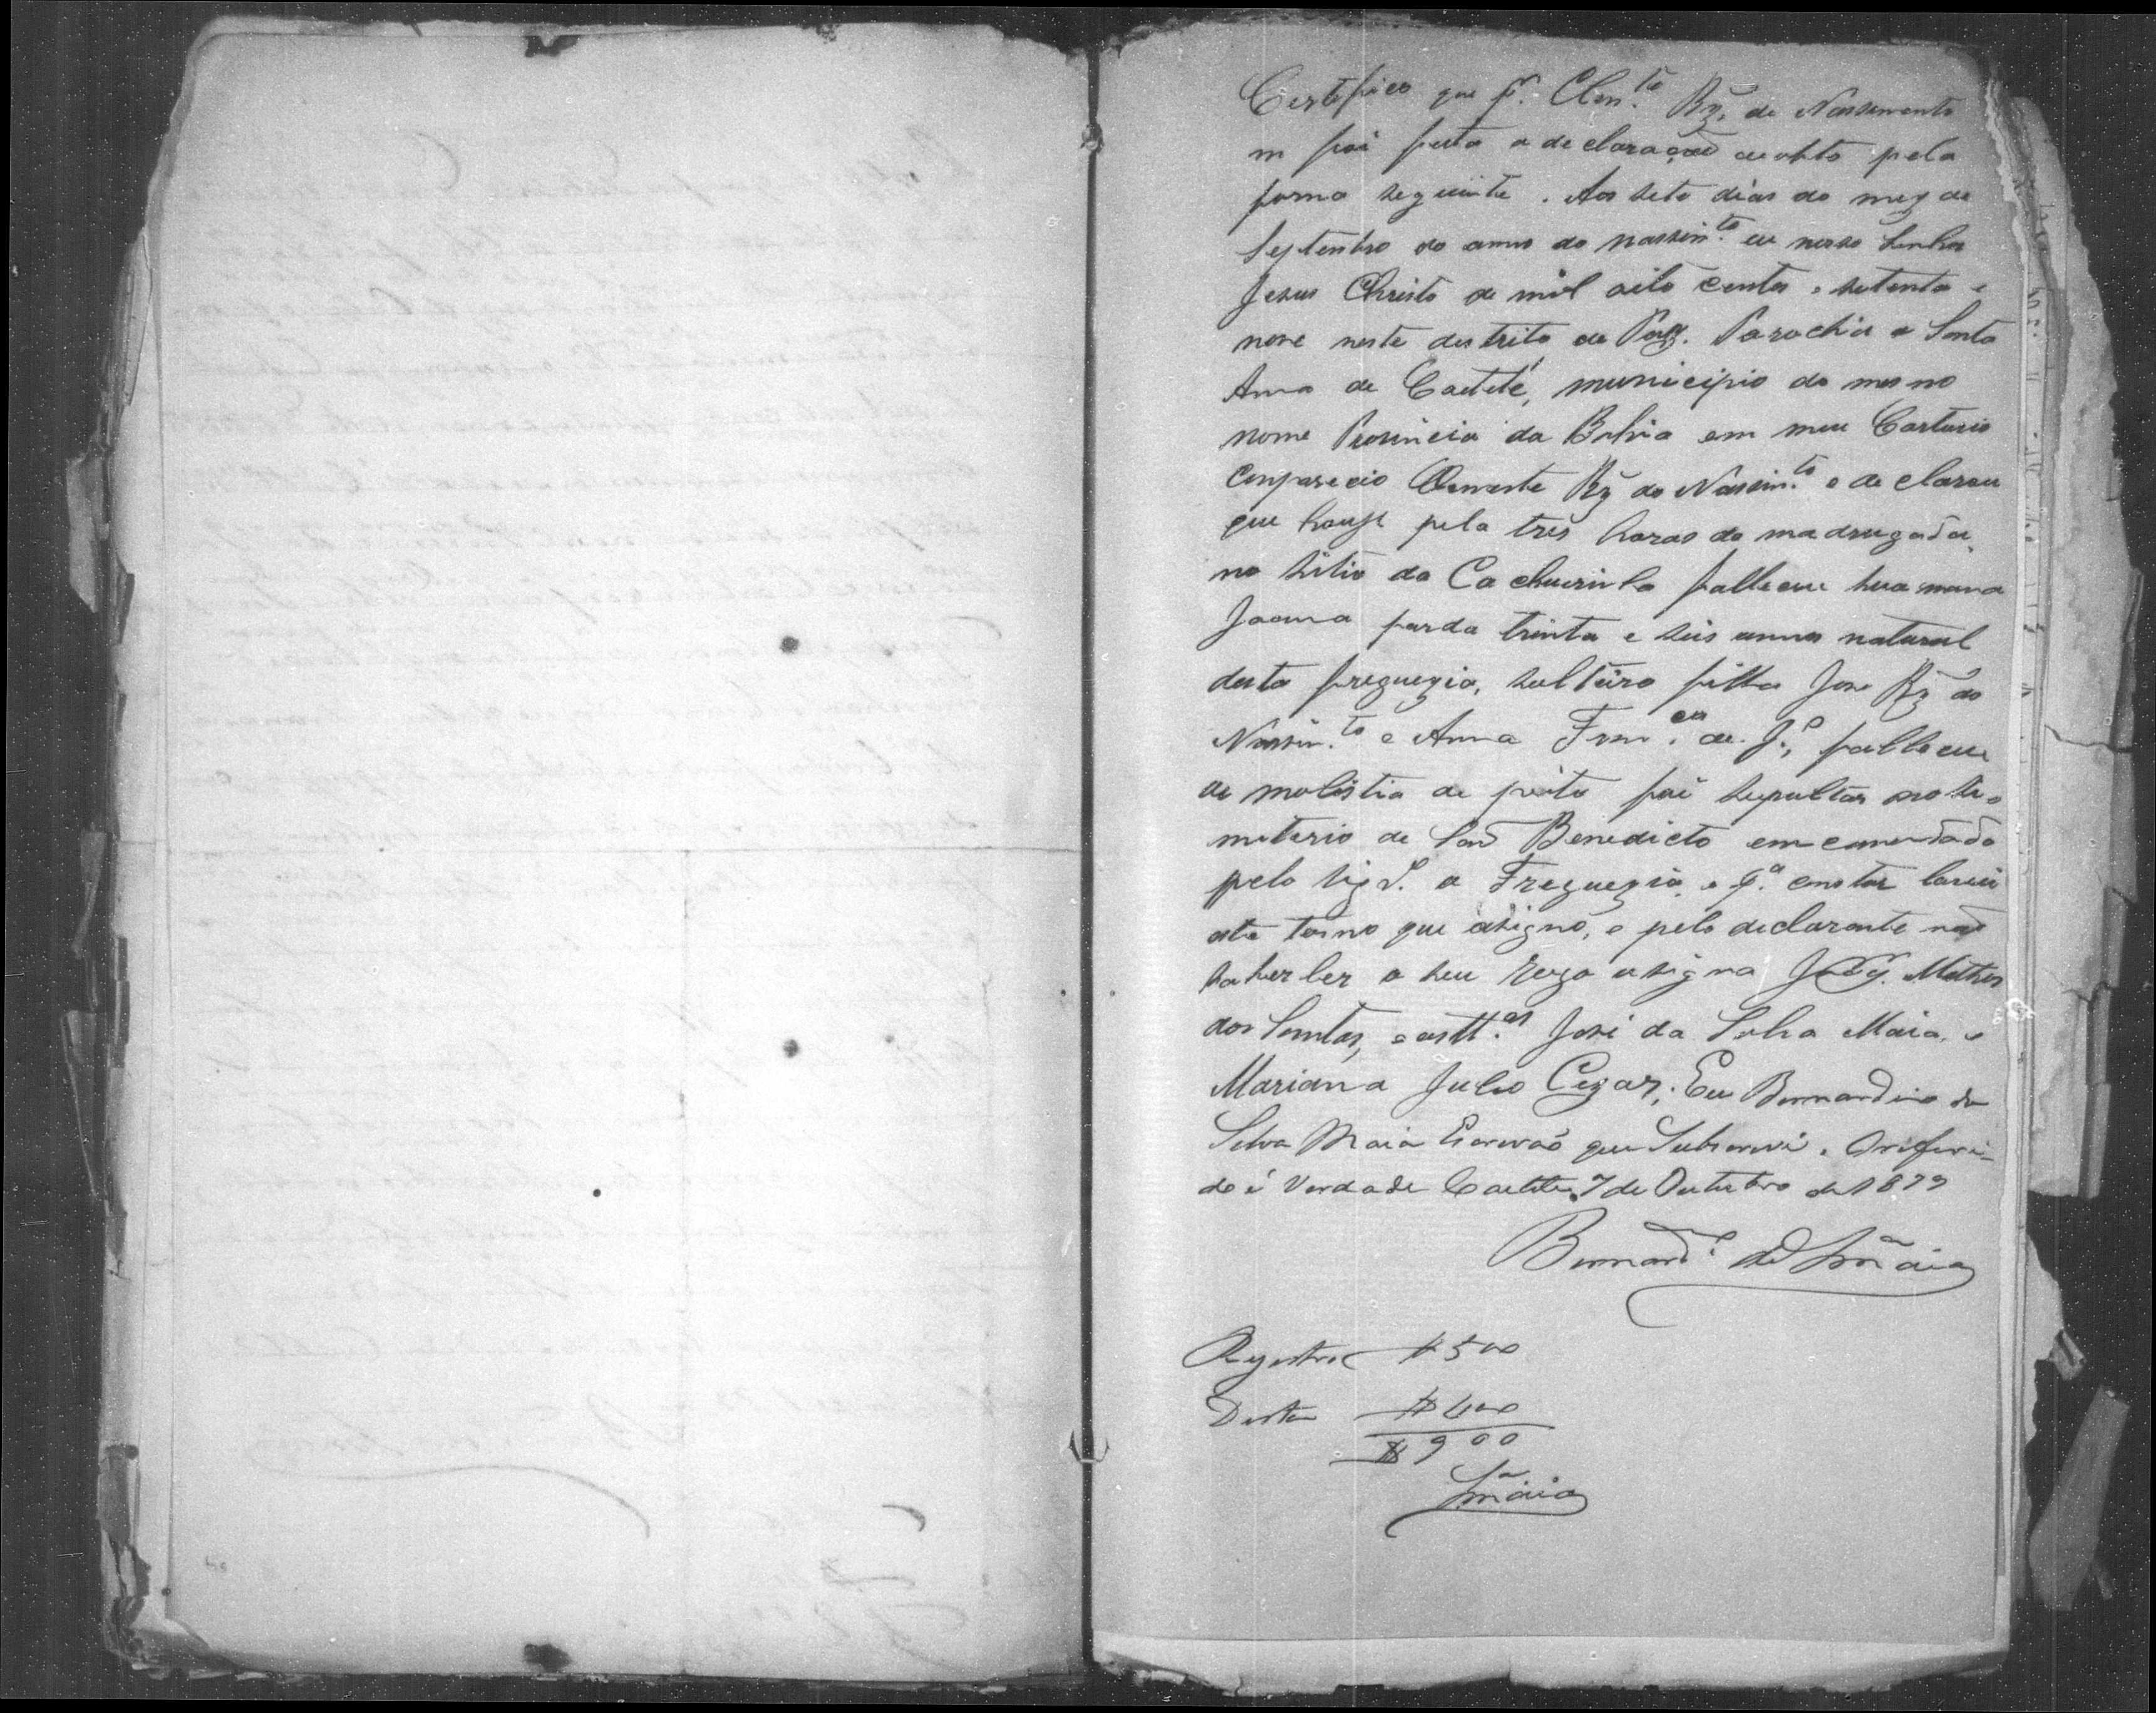 Certefico que pr. Clem.to Rz. do Nassimento
m foi feita a declaração de obto pela
forma seguinte. Aos sete dias do mez de
Septembro do anno do nassim.to de nosso Senhor
Jesus Christo de mil oito centos e setenta e
nove neste destrito de Paz. Parochia de Santa
Anna de Caeteté, municipio do mesmo
nome Provincia da Bahia em meu Cartorio
Conpareceio Clemente Rz do Nassim.to e declarou
que houje pela tres horas da madrugada
no sitio da Cachueirinha falleceu sua mana
Joanna parda trinta e seis annos natural
desta freguezia, solteira filha Jose Rz do
Nassim.to e Anna Fran.ca de J.s falleceu
de molestia de peito foi sepultar no se-
meterio de São Benedicto emcomendada
pelo Vigr.o a Freguezia e p.a constar lavrei
este termo que asigno, e pelo declarante não
saber ler a seu rogo asigna Matheus
dos Santos, e as tt.as José da Silva Maia e
Mariana Julio Cezar; Eu Bernardino da
Silva Maia Escrivão que Subscrevi. O referi-
do é Verdade Caeteté, 7 de Outubro de 1879
Bernard.o da S.a Maia
Registro $500
Desta $400
$900
S.a Maia